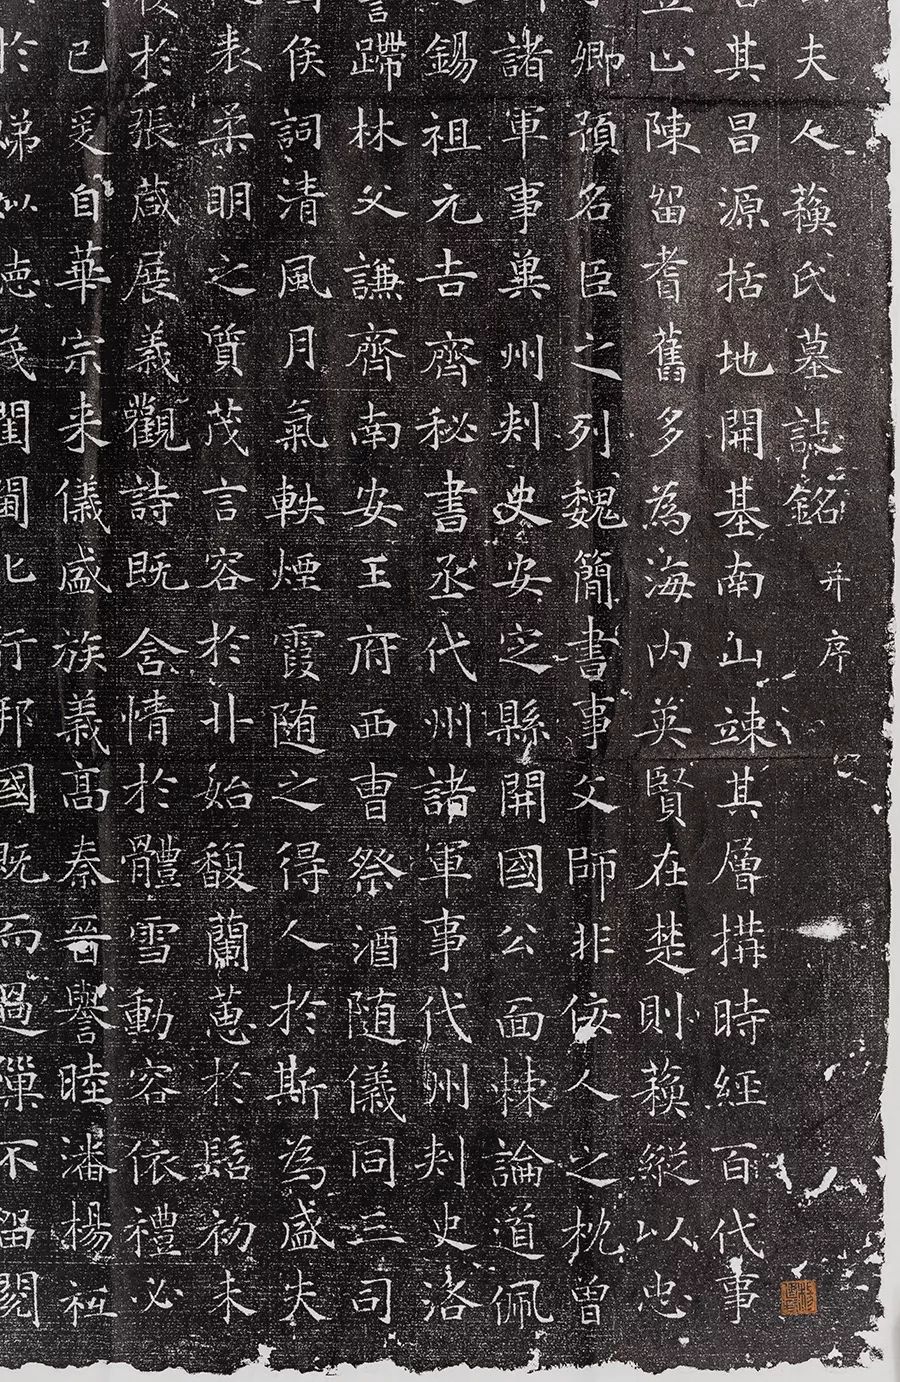 夫人蘓氏墓誌銘并序
其昌源括地開基南山竦其層搆時經百代事
陳留耆舊多為海内英賢在楚則蘓縱以忠
卿預名臣之列魏簡書事父師非侫人之枕曽
諸軍事巢州刾史安定縣開國公面棘論道佩
錫祖元吉齊秘書丞代州諸軍事代州刾史洛
蹛林父謙齊南安王府西曺祭酒随儀同三司
侯詞清風月氣軼煙霞随之得人於斯為盛夫
表柔明之質茂言容於丱始馥蘭蕙於髫初未
於張葴展義觀詩既含情於體雪動容依禮必
已爰自華宗来儀盛族義髙秦晉譽睦潘楊祉
於娣姒徳茂閨閫匕行邦國既而過隟不留閱